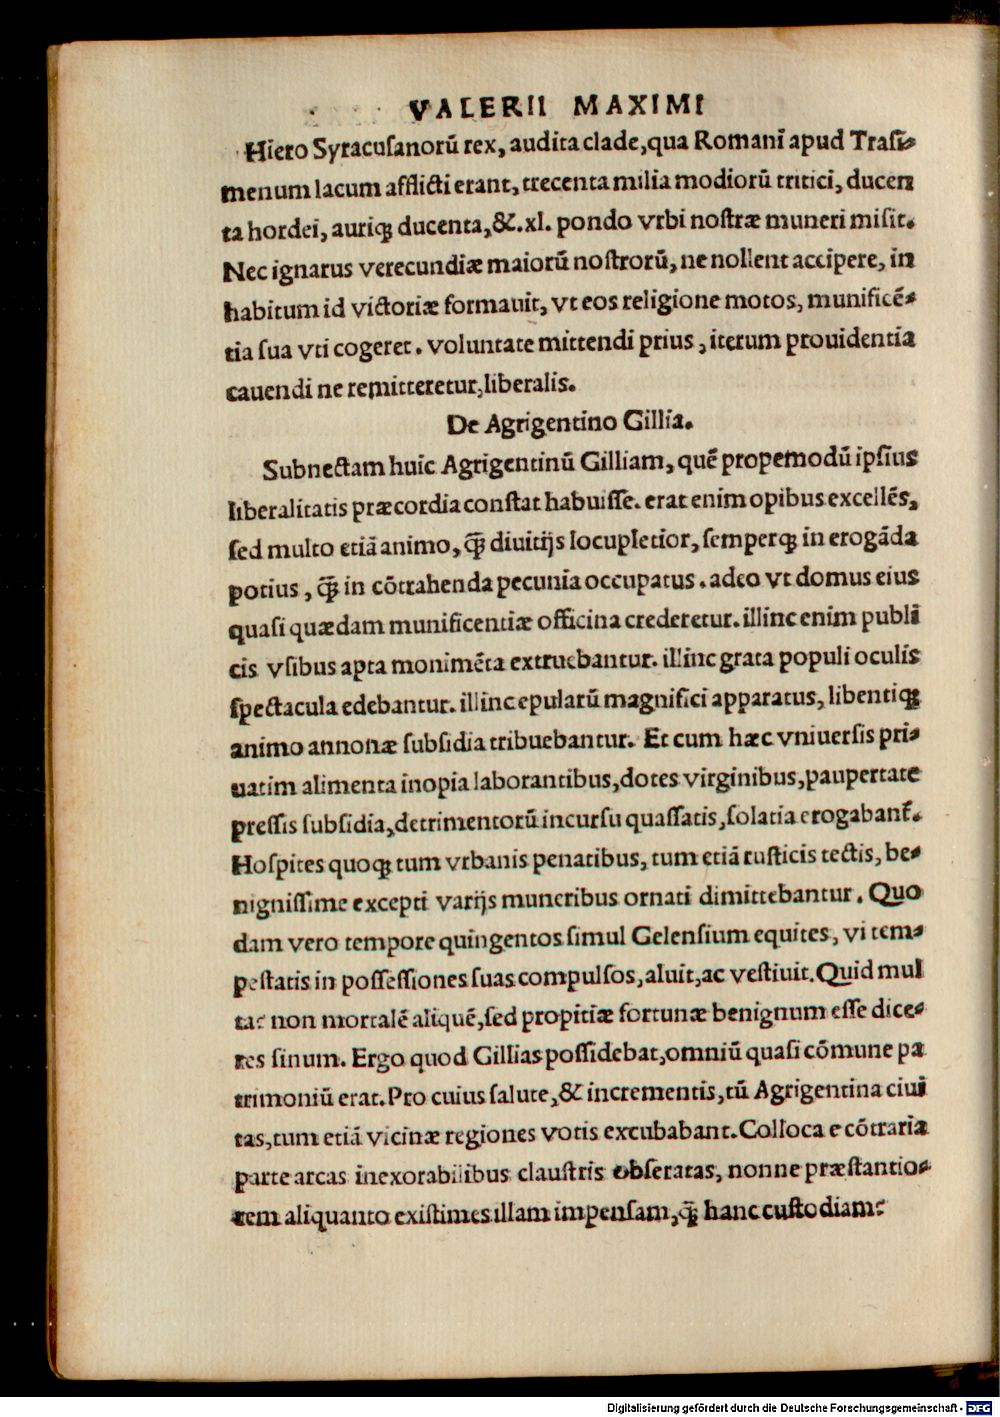 VALERII MAXIMI
Hiero Syracusanorū rex, audita clade, qua Romani apud Trasi-
menum lacum afflicti erant, trecenta milia modiorū tritici, ducen
ta hordei, auriq̃ ducenta, &.xl. pondo vrbi nostræ muneri misit.
Nec ignarus verecundiæ maiorū nostrorū, ne nollent accipere, in
habitum id victoriæ formauit, vt eos religione motos, munificē-
tia sua vti cogeret. voluntate mittendi prius, iterum prouidentia
cauendi ne remitteretur, liberalis.
De Agrigentino Gillia.
Subnectam huic Agrigentinū Gilliam, quē propemodū ipsius
liberalitatis præcordia constat habuisse. erat enim opibus excellēs,
sed multo etiā animo, q̃ diuitijs locupletior, semperq̃ in erogāda
potius, q̃ in cōtrahenda pecunia occupatus. adeo vt domus eius
quasi quædam munificentiæ officina crederetur. illinc enim publi
cis vsibus apta monimēta extruebantur. illinc grata populi oculis
spectacula edebantur. illinc epularū magnifici apparatus, libentiq̃
animo annonæ subsidia tribuebantur. Et cum hæc vniuersis pri-
uatim alimenta inopia laborantibus, dotes virginibus, paupertate
pressis subsidia, detrimentorū incursu quassatis, solatia erogabant̃.
Hospites quoq̃ tum vrbanis penatibus, tum etiā rusticis tectis, be-
nignissime excepti varijs muneribus ornati dimittebantur. Quo
dam vero tempore quingentos simul Gelensium equites, vi tem-
pestatis in possessiones suas compulsos, aluit, ac vestiuit. Quid mul
ta? non mortalē aliquē, sed propitiæ fortunæ benignum esse dice-
res sinum. Ergo quod Gillias possidebat, omniū quasi cōmune pa
trimoniū erat. Pro cuius salute, & incrementis, tū Agrigentina ciui
tas, tum etiā vicinæ regiones votis excubabant. Colloca e cōtraria
parte arcas inexorabilibus claustris obseratas, nonne præstantio-
rem aliquanto existimes illam impensam, q̃ hanc custodiam?
Digitalisierung gefördert durch die Deutsche Forschungsgemeinschaft - DFG